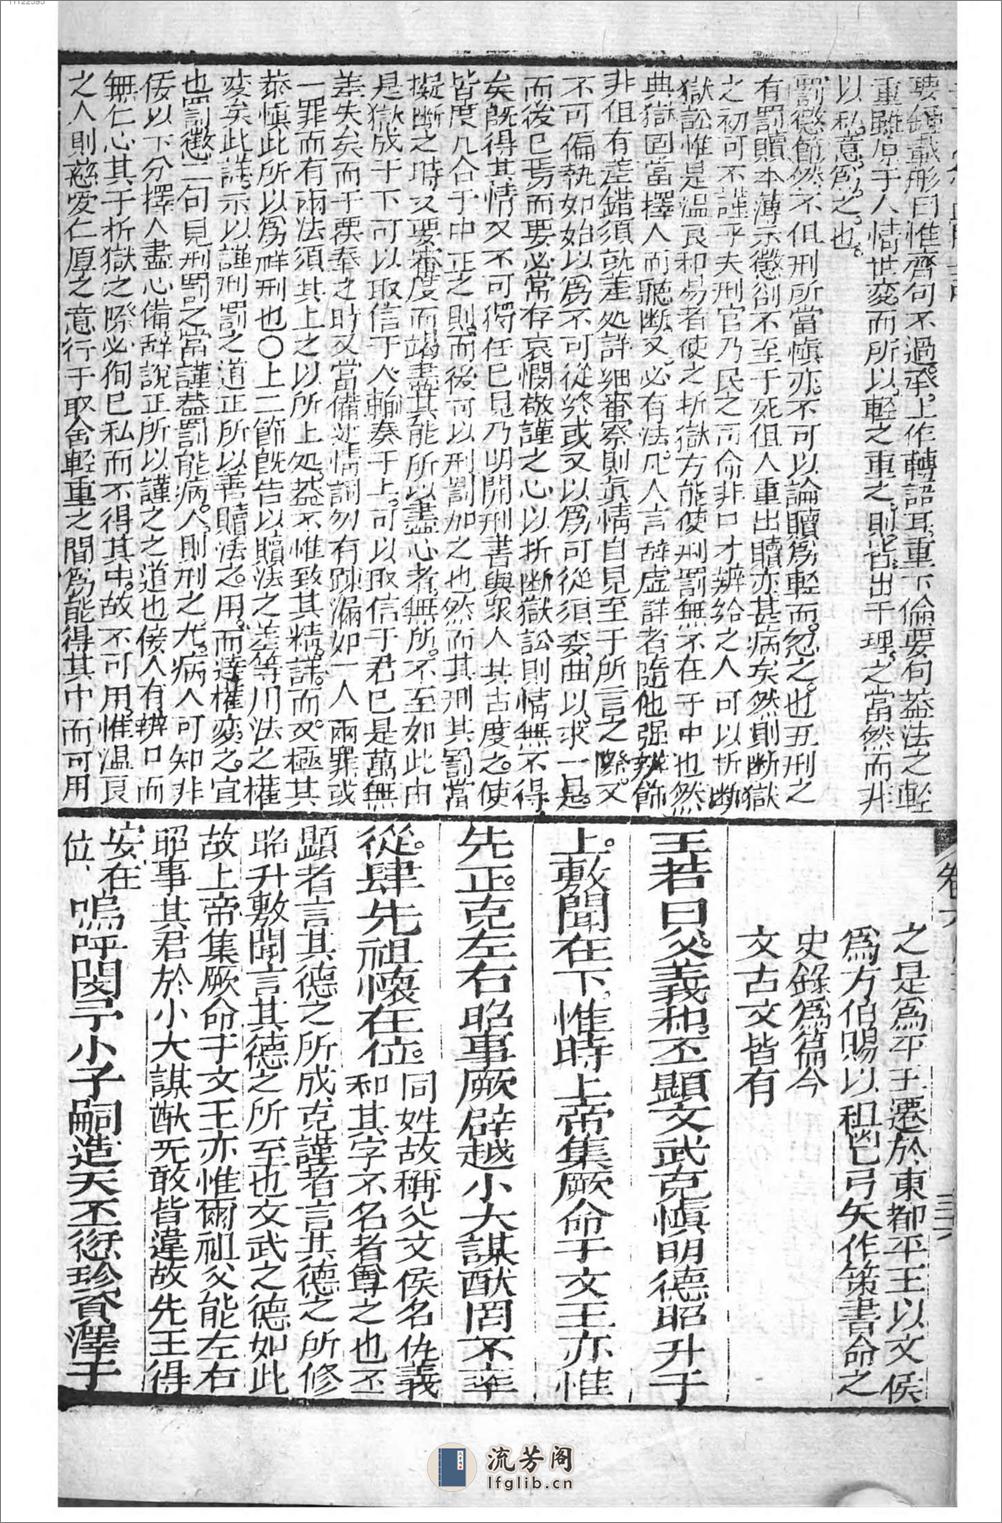 惟齊句不過承上作轉語耳重下倫要句葢法之輕
重雖居于人情世変而所以輕之重之則皆出于理之當然而非
以私意爲之也
罰懲節然不但刑所當愼亦不可以論贖爲輕而忽之也五刑之
有罰贖本薄示懲創不至于死但人重出贖亦甚病矣然則斷獄
之初可不謹乎夫刑官乃民之司命非口才辨給之人可以折斷
獄訟惟是温良和易者使之折獄方能使刑罰無不在于中也然
典獄固當擇人而聽斷又必有法凡人言辞虛詳者隨他强辨飾
非但有差錯須就差処詳細審察則眞情自見至于所言之際又
不可偏執如始以爲不可從終或又以爲可從須委曲以求一是
而後巳焉而要必常存哀憫敬謹之心以折斷獄訟則情無不得
矣旣得其情又不可獨任巳見乃明開刑書與衆人共占度之使
皆庶几合于中正之則而後可以刑罰加之也然而其刑其罰當
擬斷之時又要審度而竭盡其能所以盡心者無所不至如此由
是獄成于下可以取信于人輸奏于上可以取信于君巳是萬無
差失矣而于奏之時又當備述情詞勿有踈漏如一人兩罪或
一罪而有兩法須具上之以所上処葢不惟致其精詳而又極其
恭愼此所以爲祥刑也〇上二節旣告以贖法之差等用法之權
変矣此詳示以謹刑罰之道正所以善贖法之用而達權変之宜
也罰懲二句見刑罰之當謹葢罰能病人則刑之尤病人可知非
佞以下分擇人盡心備辞說正所以謹之之道也佞人有辨口而
無仁心其于折獄之際必徇巳私而不得其中故不可用惟温良
之人則慈愛仁厚之意行于取舍輕重之間爲能得其中而可用
卷六
三六
之是爲平王遷於東都平王以文侯
爲方伯賜以秬鬯弓矢作策書命之
史錄爲篇今
文古文皆有
王若曰父義和丕顯文武克愼明德昭升于
上敷聞在下惟時上帝集厥命于文王亦惟
先正克左右昭事厥辟越小大謀猷罔不率
從肆先祖懷在位同姓故稱父文侯名仇義
和其字不名者尊之也丕
顯者言其德之所成克謹者言其德之所修
昭升敷聞言其德之所至也文武之德如此
故上帝集厥命于文王亦惟爾祖父能左右
昭事其君於小大謀猷无敢皆違故先王得
安在
位嗚呼閔予小子嗣造天丕愆殄資澤于
流芳阁
lfglib.cn
11122595